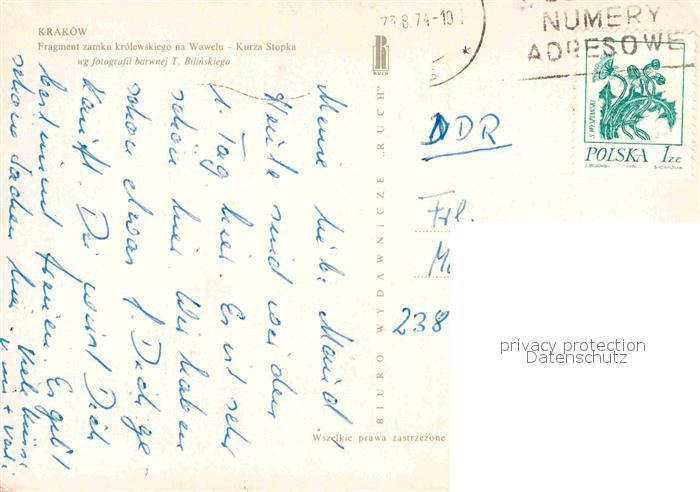 KRAKÓW
Fragment zamku królewskiego na Wawelu – Kurza Stopka
wg fotografii barwnej T. Bilińskiego
RUCH
BIURO WYDAWNICZE „RUCH”
Wszelkie prawa zastrzeżone
23.8.74-10
NUMERY
ADRESOWE
POLSKA 1 ZŁ
Meine lieb.
Heute sind wir den
1. Tag hier. Es ist sehr
schön hier. Wir haben
schon etwas f. Dich ge-
kauft. Du wirst Dich
bestimmt freuen. Es gibt
schöne Sachen hier. Viele
DDR
Frl.
238
privacy protection
Datenschutz